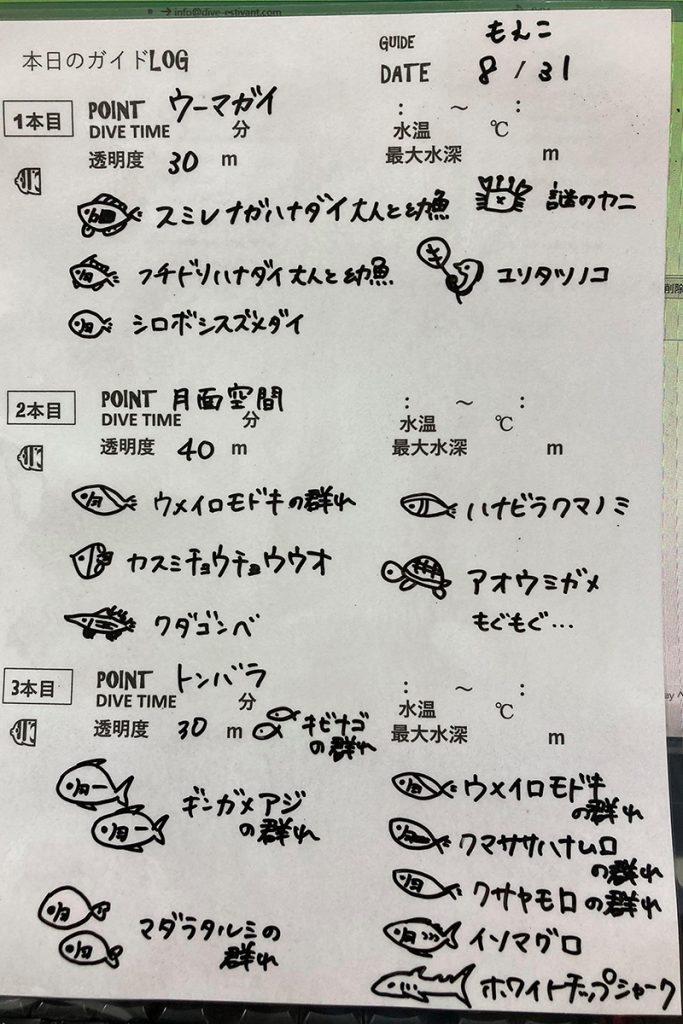 info@dive-estivant.com
本日のガイドLOG
GUIDE もえこ
DATE 8/31
1本目
POINT ウーマガイ
DIVE TIME 分
: ～ :
水温 ℃
透明度 30 m
最大水深 m
スミレナガハナダイ 大人と幼魚
謎のカニ
フチドリハナダイ 大人と幼魚
ユリタツノコ
シロボシスズメダイ
2本目
POINT 月面空間
DIVE TIME 分
: ～ :
水温 ℃
透明度 40 m
最大水深 m
ウメイロモドキの群れ
ハナビラクマノミ
カスミチョウチョウウオ
アオウミガメ
もぐもぐ…
クダゴンベ
3本目
POINT トンバラ
DIVE TIME 分
: ～ :
水温 ℃
透明度 30 m
最大水深 m
キビナゴ
の群れ
ギンガメアジ
の群れ
ウメイロモドキ
の群れ
クマササハナムロ
の群れ
クサヤモロの群れ
マダラタルミの
群れ
イソマグロ
ホワイトチップシャーク
削除